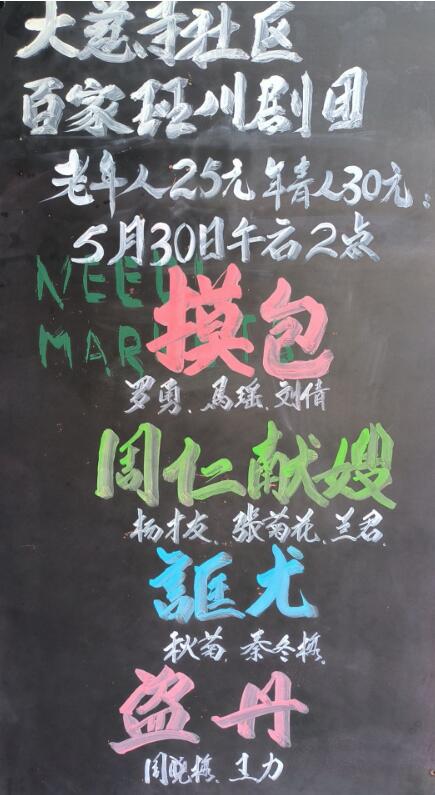 大慈寺社区
百家班川剧团
老年人25元 年青人30元:
5月30日午后2点
NEED
MAR
摸包
罗勇、馬瑶、刘倩
周仁献嫂
杨才友、張菊花、兰君
誆尤
秋菊、秦冬梅
盗丹
周晓梅、王力